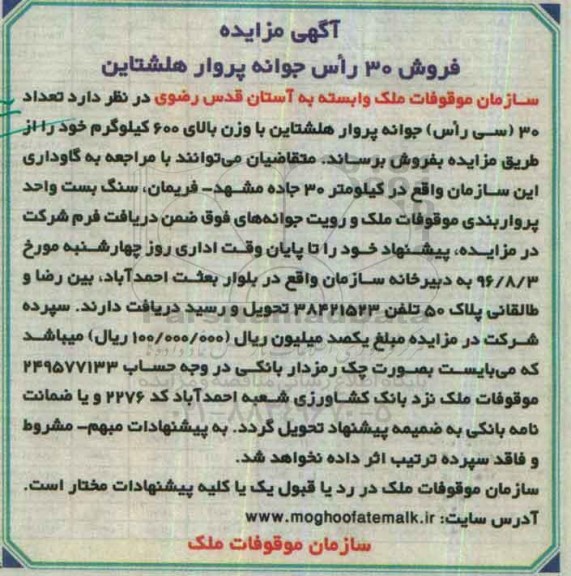 آگهی مزایده
فروش ۳۰ رأس جوانه پروار هلشتاین
سازمان موقوفات ملک وابسته به آستان قدس رضوی در نظر دارد تعداد
۳۰ (سی رأس) جوانه پروار هلشتاین با وزن بالای ۶۰۰ کیلوگرم خود را از
طریق مزایده بفروش برساند. متقاضیان می‌توانند با مراجعه به گاوداری
این سازمان واقع در کیلومتر ۳۰ جاده مشهد- فریمان، سنگ بست واحد
پرواربندی موقوفات ملک و رویت جوانه‌های فوق ضمن دریافت فرم شرکت
در مزایده، پیشنهاد خود را تا پایان وقت اداری روز چهارشنبه مورخ
۹۶/۸/۳ به دبیرخانه سازمان واقع در بلوار بعثت احمدآباد، بین رضا و
طالقانی پلاک ۵۰ تلفن ۳۸۴۲۱۵۲۳ تحویل و رسید دریافت دارند. سپرده
شرکت در مزایده مبلغ یکصد میلیون ریال (۱۰۰/۰۰۰/۰۰۰ ریال) میباشد
که می‌بایست بصورت چک رمزدار بانکی در وجه حساب ۲۴۹۵۷۷۱۳۳
موقوفات ملک نزد بانک کشاورزی شعبه احمدآباد کد ۲۲۷۶ و یا ضمانت
نامه بانکی به ضمیمه پیشنهاد تحویل گردد. به پیشنهادات مبهم- مشروط
و فاقد سپرده ترتیب اثر داده نخواهد شد.
سازمان موقوفات ملک در رد یا قبول یک یا کلیه پیشنهادات مختار است.
آدرس سایت: www.moghoofatemalk.ir
سازمان موقوفات ملک